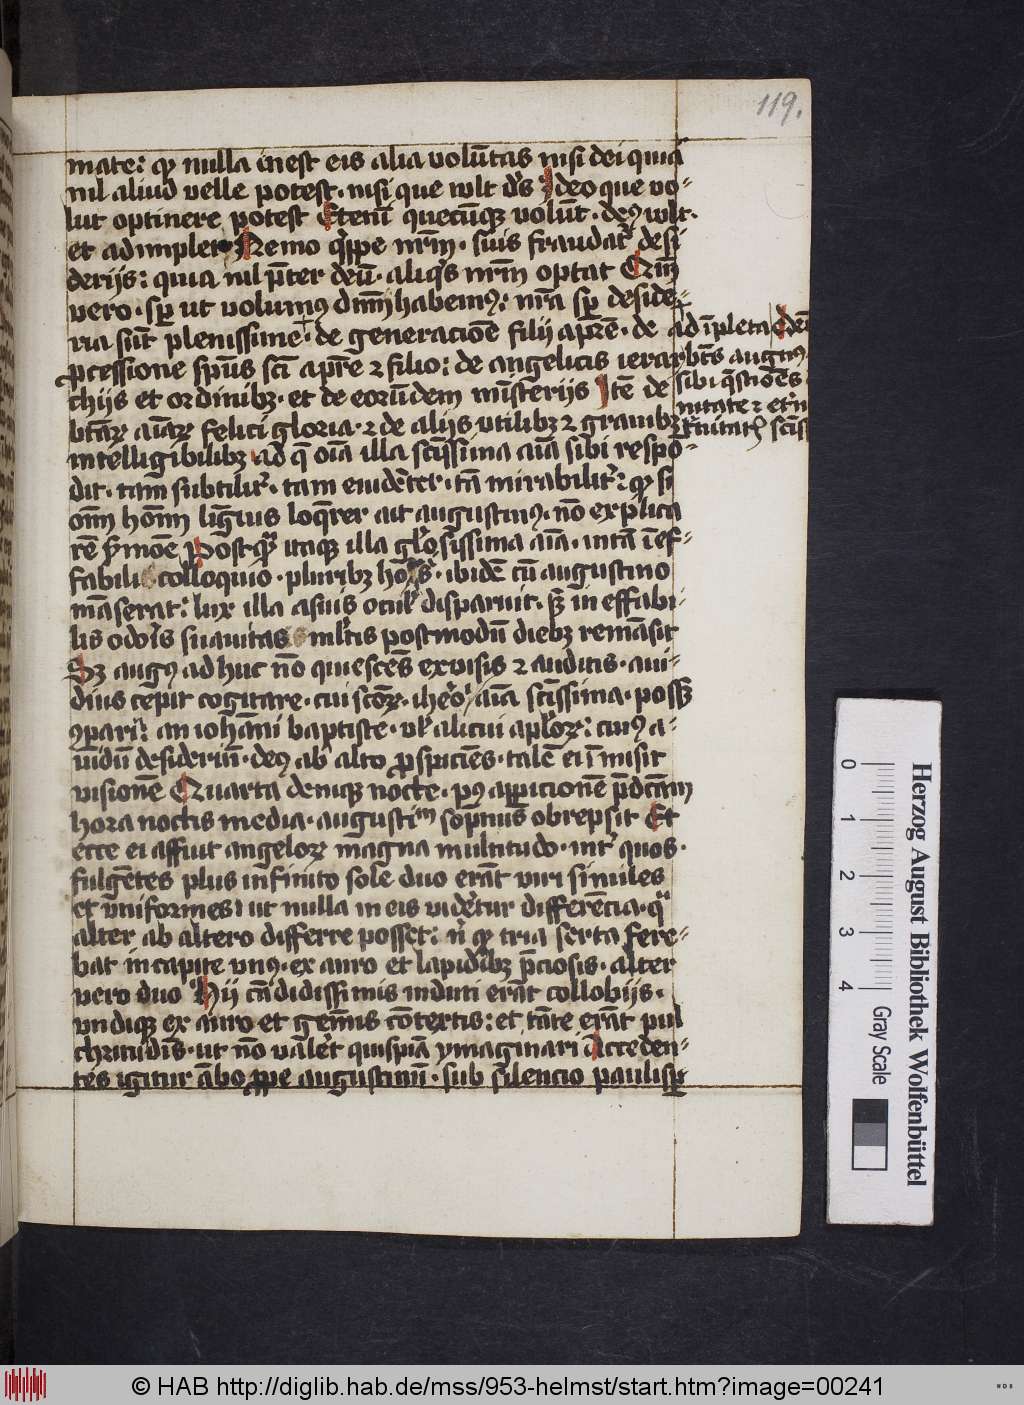 119.
mate: qꝫ nulla inest eis alia volūtas nisi dei quia
nil aliud velle potest. nisi que wlt ds̄ Ideo que vo-
lut optinere potest Etenī quecūqꝫ volūt. deꝰ wlt.
et adimplet Nemo q̄ppe nrm̄. suis fraudat̉ desi
derijs: quia nil p̄ter deū. aliqͥs nrm̄ optat Cū
vero. sꝑ ut volumꝰ dnm̄ habemꝰ: nrā sꝑ deside-
ria sūt plenissime. de generacōe filij a pre̅. de
ꝓcessione spūs sci̅ a pre̅ ⁊ filio: de angelicis ierar
chijs et ordinibꝫ. et de eorūdem mīsterijs Itē de
btāꝝ aīaꝝ felici gloria. ⁊ de alijs vtilibꝫ ⁊ grauibꝫ
intelligibilibꝫ ad q̄ oīa illa scīssima aīa sibi respō-
dit. tam subtilit̉. tam euidēter. tā mirabilit̉: qꝫ si
om̄ hom̄ lig̅uis loq̄rer ait augustinꝰ. nō explica
rē
Postqͣ itaqꝫ illa glōsissima aīa. in tā inef-
fabili colloquio. pluribꝫ hoīs. ibidē cū augustino
māserat: lux illa a suis oculis disparuit. sꝫ in effabi-
lis odoris suauitas mltis postmodū diebꝫ remāsit
Sꝫ augꝰ ad huc nō quiescēs ex visis ⁊ auditis. aui-
dius cepit cogitare. cui scōꝝ. iherōi aīa scīssima. possꝫ
ꝯpari: an iohāni baptiste. vl̄ alicui aplōꝝ: cuiꝰ a-
uidū desideriū. deꝰ ab alto ꝓspiciēs. talē ei īmisit
visionē Quarta deniqꝫ nocte. pꝰ appicionē p̄dcām
hora noctis media. augustinū sopnius obrepsit Et
ecce ei affuit angeloꝝ magna multitudo. int̉ quos.
fulgētes plus infinito sole duo erāt viri similes
et vniformes: ut nulla in eis viderētur differēcia. qͣ
alter ab altero differre posset: nͥ qꝫ tria serta fere-
bat in capite vnꝰ. ex auro et lapidibꝫ p̄ciosis. alter
vero duo Hij cādidissimis induti erāt collobijs.
vndiqꝫ ex auro et gemīs cōtextis: et tāte erāt pul
chritudīs. ut nō valēt quispiā ymaginari Acceden-
tes igitur ābo ꝓpe augustinū. sub silencio paulisꝑ
ad īpleta
btūs augꝰ
sibi q̄stiōes
Herzog August Bibliothek Wolfenbüttel
0 1 2 3 4 Gray Scale
© HAB http://diglib.hab.de/mss/953-helmst/start.htm?image=00241